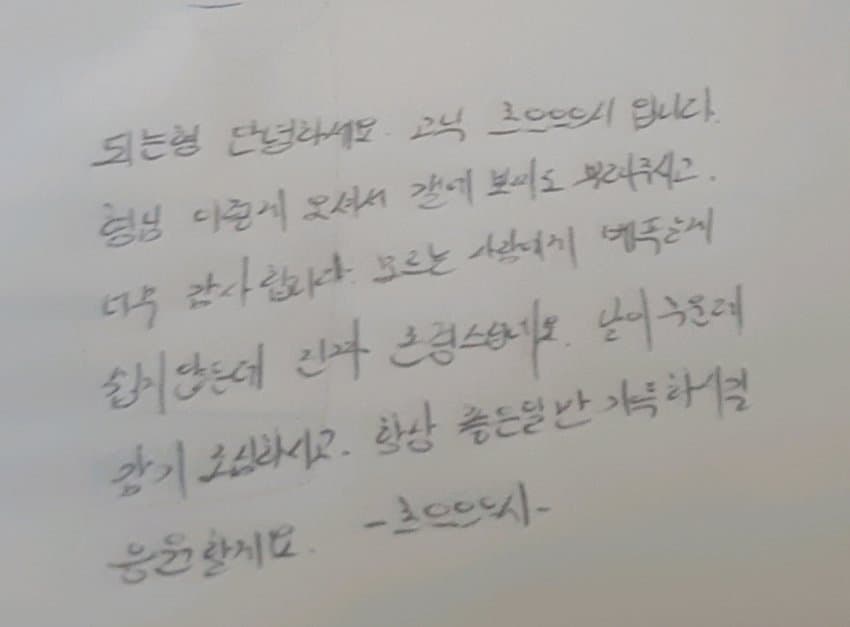 되는형 안녕하세요. 고닉 흐으으으시 입니다.
형님 이렇게 오셔서 갤에 보띠도 뿌려주시고.
너무 감사합니다. 모르는 사람에게 베푸는게
쉽지않은데 진짜 존경스럽네요. 날이 추운데
감기 조심하시고. 항상 좋은일만 가득하시길
응원할게요. -흐으으으시-